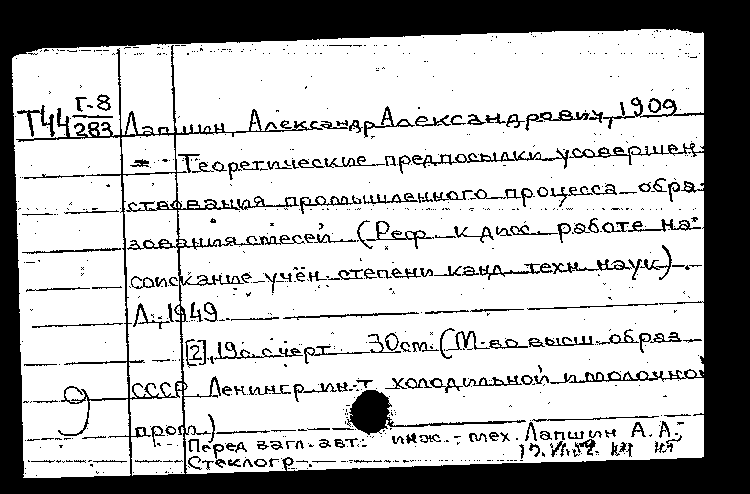 Т44 Г-8
283 Лапшин, Александр Александрович, 1909
Теоретические предпосылки усовершен-
ствования промышленного процесса обра-
зования смесей. (Реф. к дисс. работе на
соискание учён. степени канд. техн. наук).
Л., 1949.
[2], 19 с. с черт. 30 см. (М-во высш. образ.
СССР. Ленингр. ин-т холодильной и молочной
9 пром.)
Перед загл. авт.: инж.-мех. Лапшин А. А.;
Стеклогр.